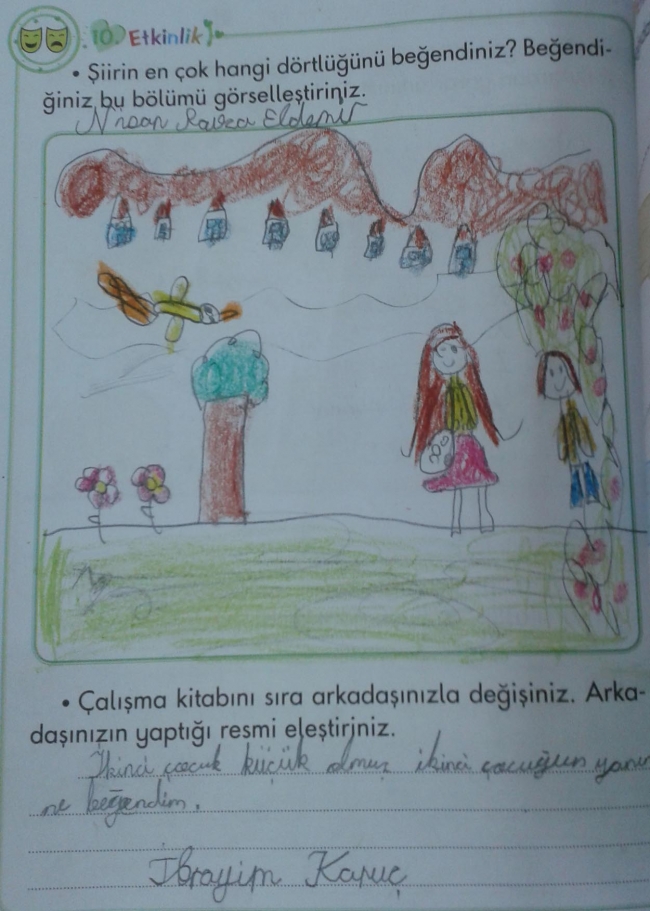 10. Etkinlik
• Şiirin en çok hangi dörtlüğünü beğendiniz? Beğendi-
ğiniz bu bölümü görselleştiriniz.
Nisan Ravza Eldemir
• Çalışma kitabını sıra arkadaşınızla değişiniz. Arka-
daşınızın yaptığı resmi eleştiriniz.
İkinci çocuk küçük olmuş ikinci çocuğun yanı
ne beğendim.
İbrayim